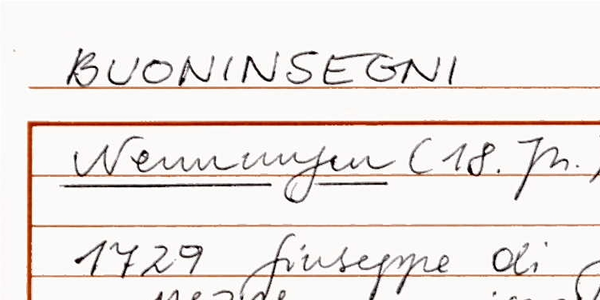 BUONINSEGNI
Nennungen (18. Jh.)
1729 Giuseppe di